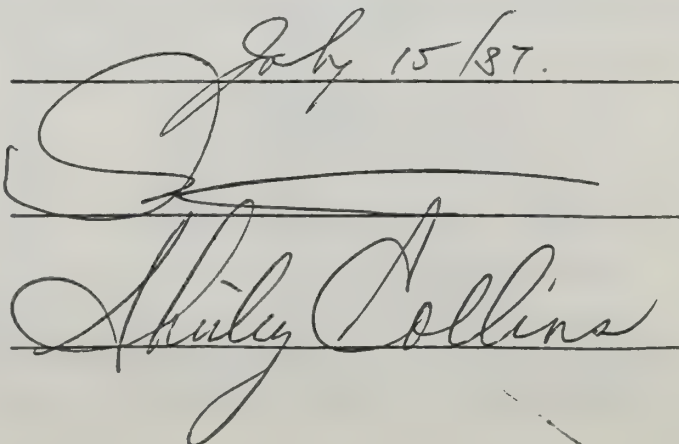 July 15/87.
Shirley Collins